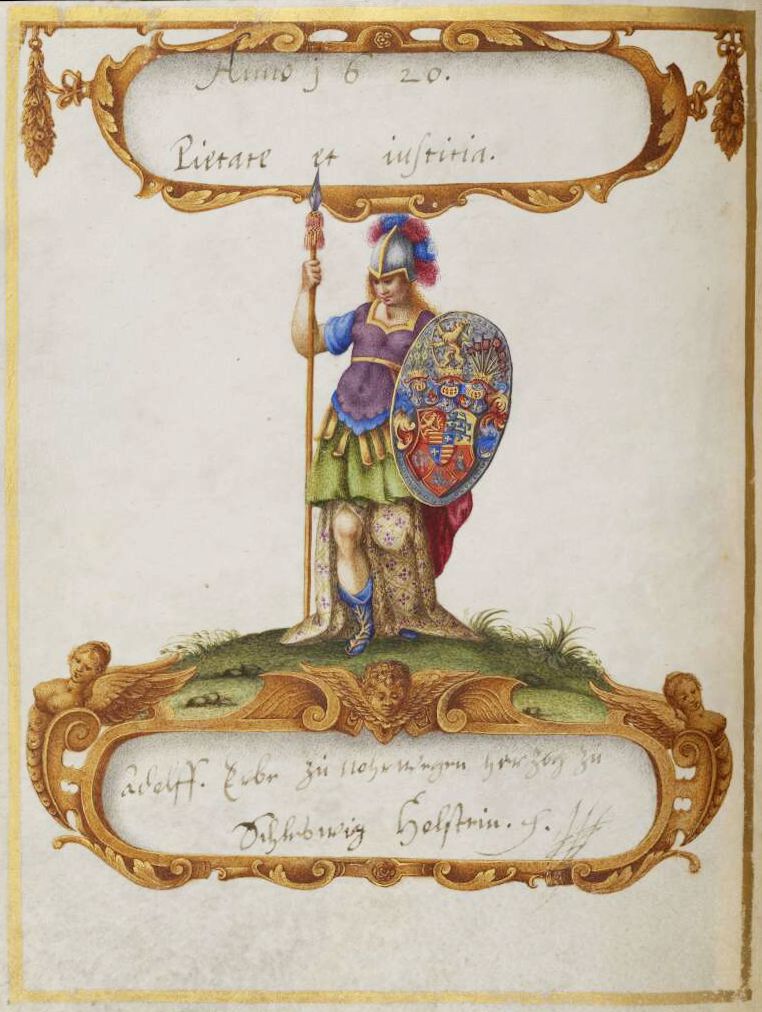 Anno 1620.
Pietate et iustitia.
Adolff. Erbe zu Norwegen herzog zu
Schleswig Holstein.